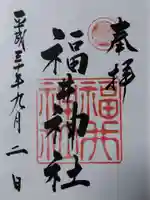 奉拝
福井神社
平成三十年九月二日